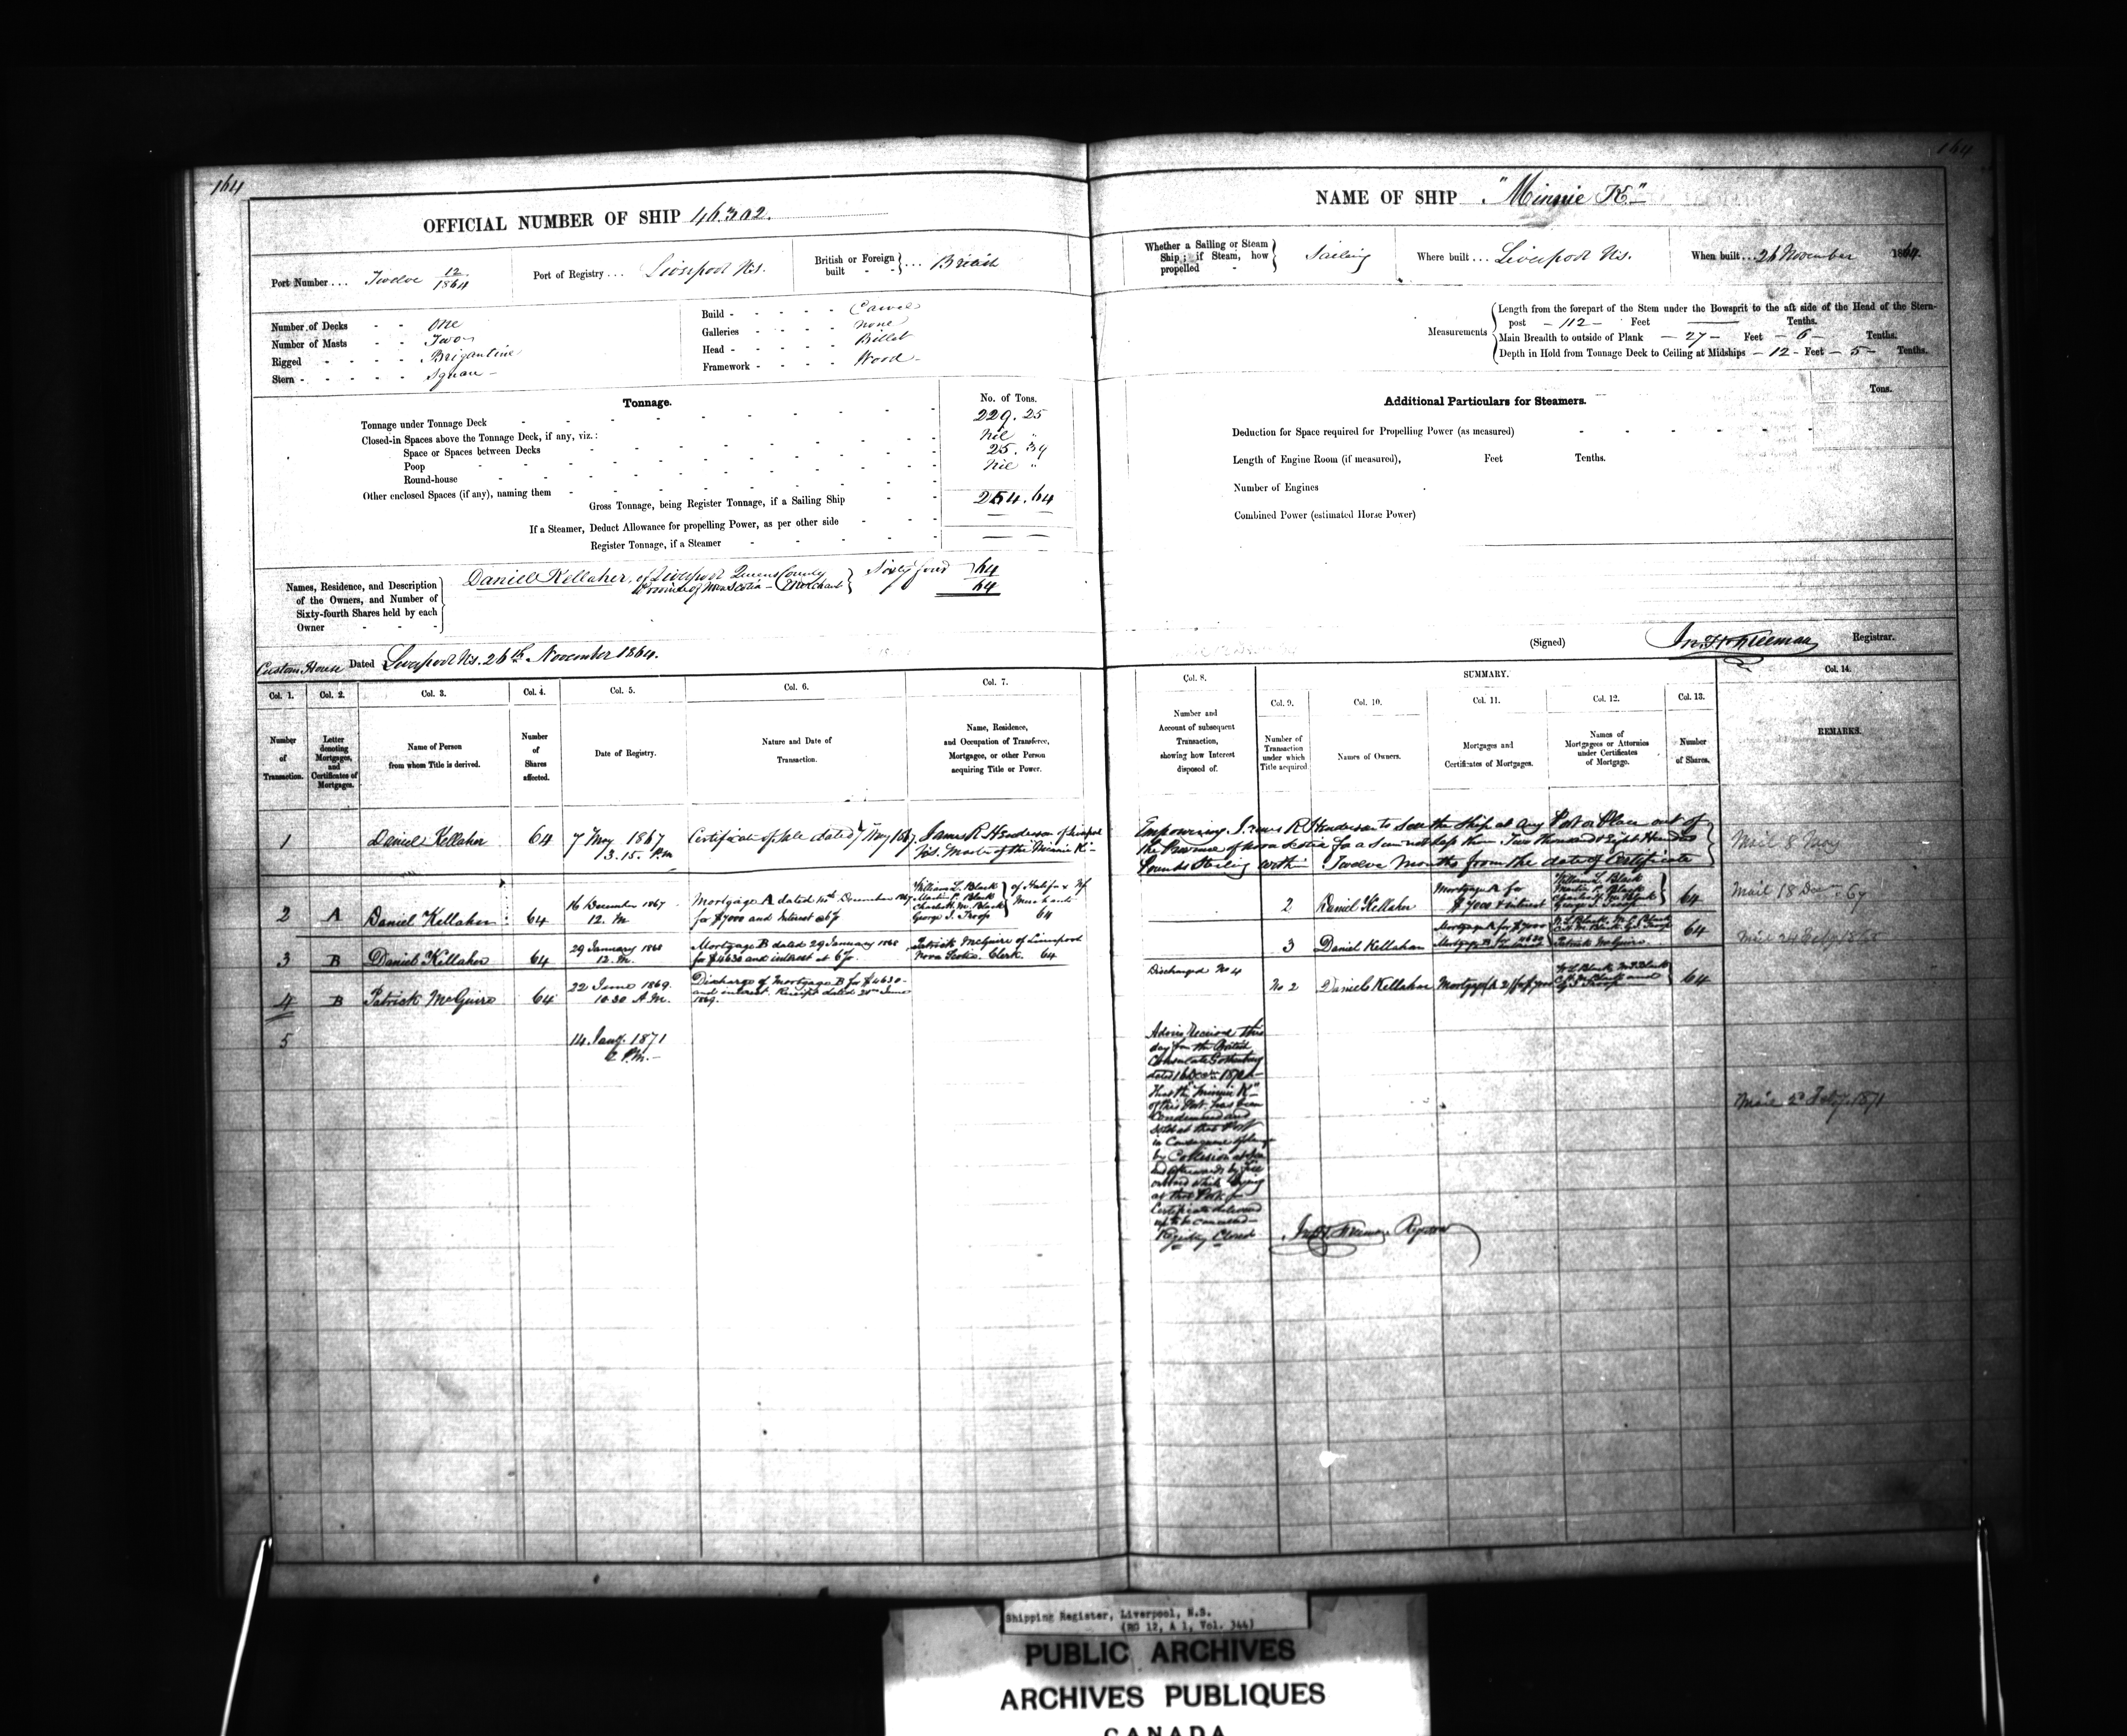 164
164
OFFICIAL NUMBER OF SHIP 46.302.
NAME OF SHIP "Minnie K."
Port Number ... Twelve 12/1864
Port of Registry ... Liverpool N.S.
British or Foreign built ... British
Whether a Sailing or Steam Ship; if Steam, how propelled - Sailing
Where built ... Liverpool N.S.
When built ... 26 November 1864.
Number of Decks - - One
Number of Masts - - Two
Rigged - - - - Brigantine
Stern - - - - - Square
Build - - - - - Carvel
Galleries - - - - none
Head - - - - - Billet
Framework - - - - Wood
Measurements
Length from the forepart of the Stem under the Bowsprit to the aft side of the Head of the Stern-
post - 112 - Feet —— Tenths.
Main Breadth to outside of Plank - 27 - Feet - 6 - Tenths.
Depth in Hold from Tonnage Deck to Ceiling at Midships - 12 - Feet - 5 - Tenths.
Tonnage.
No. of Tons.
Tonnage under Tonnage Deck 229.25
Closed-in Spaces above the Tonnage Deck, if any, viz.:
Nil "
Space or Spaces between Decks
25.39
Poop
Nil "
Round-house
Other enclosed Spaces (if any), naming them
Gross Tonnage, being Register Tonnage, if a Sailing Ship 254.64
If a Steamer, Deduct Allowance for propelling Power, as per other side
Register Tonnage, if a Steamer
Additional Particulars for Steamers.
Tons.
Deduction for Space required for Propelling Power (as measured)
Length of Engine Room (if measured), Feet Tenths.
Number of Engines
Combined Power (estimated Horse Power)
Names, Residence, and Description
of the Owners, and Number of
Sixty-fourth Shares held by each
Owner
Daniel Kellaher, of Liverpool Queens County
Province of Nova Scotia - Merchant
Sixty four 64
64
Custom House Dated Liverpool N.S. 26th November 1864.
(Signed) Jno. H. Freeman Registrar.
Col. 1. Col. 2. Col. 3. Col. 4. Col. 5. Col. 6. Col. 7.
Col. 8. SUMMARY. Col. 14.
Col. 9. Col. 10. Col. 11. Col. 12. Col. 13.
Number of Transaction.
Letter denoting Mortgages, and Certificates of Mortgages.
Name of Person from whom Title is derived.
Number of Shares affected.
Date of Registry.
Nature and Date of Transaction.
Name, Residence, and Occupation of Transferee, Mortgagee, or other Person acquiring Title or Power.
Number and Account of subsequent Transaction, showing how Interest disposed of.
Number of Transaction under which Title acquired
Names of Owners.
Mortgages and Certificates of Mortgages.
Names of Mortgagees or Attornies under Certificates of Mortgage.
Number of Shares.
REMARKS.
1 Daniel Kellaher 64 7 May 1867 3.15. P.m
Certificate of Sale dated 7 May 1867.
James R Henderson of Liverpool
N.S. Master of the Minnie K -
Empowering James R Henderson to Sell the Ship at any Port or Place out of
the Province of Nova Scotia for a Sum not less than Two Thousand & Eight Hundred
Pounds Sterling within Twelve Months from the date of Certificate
Mail 8 May
2 A Daniel Kellaher 64
16 December 1867
12. M
Mortgage A dated December 1867
for $7000 and Interest
William L. Black
Martin P. Black
Charles H. M. Black
George J. Troop
of Halifax
Merchants
64
2 Daniel Kellaher
Mortgage A for
$7000 & interest
William L. Black
Martin P. Black
Charles H. M. Black
George J. Troop
64
Mail 18 Decem 67
3 B Daniel Kellaher 64
29 January 1868
12. M.
Mortgage B dated 29 January 1868
for $4630 and interest at 6%.
Patrick McGuire of Liverpool
Nova Scotia. Clerk. 64
3 Daniel Kellaher
Mortgage A for $7000
Mortgage B for
Patrick McGuire
64
Mail 24 Feby 1868
4 B Patrick McGuire 64
22 June 1869.
10.30 A.M.
Discharge of Mortgage B for $4630-
and interest. Receipt dated June
1869.
Discharged No 4
No 2 Daniel Kellaher
W L Black M P Black
64
5
14 Jany. 1871
2 P.M.-
Advice Received this
day from the British
Consulate
dated
that the "Minnie K"
of this Port has been
Condemned and
Sold at that Port
in Consequence of
by Collision at Sea
and afterwards by fire
on board while lying
at that Port
Certificate delivered
up to be cancelled
Registry Closed
Jno. H. Freeman Registrar
Mail 2d Feby. 1871
Shipping Register, Liverpool, N.S.
(RG 12, A 1, Vol. 344)
PUBLIC ARCHIVES
ARCHIVES PUBLIQUES
CANADA